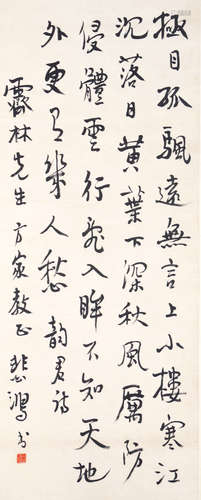 極目孤颿遠無言上小樓寒江
沉落日黃葉下深秋風厲防
侵體雲行飛入眸不知天地
外更有幾人愁 韻君詩
林先生方家教正 悲鴻書